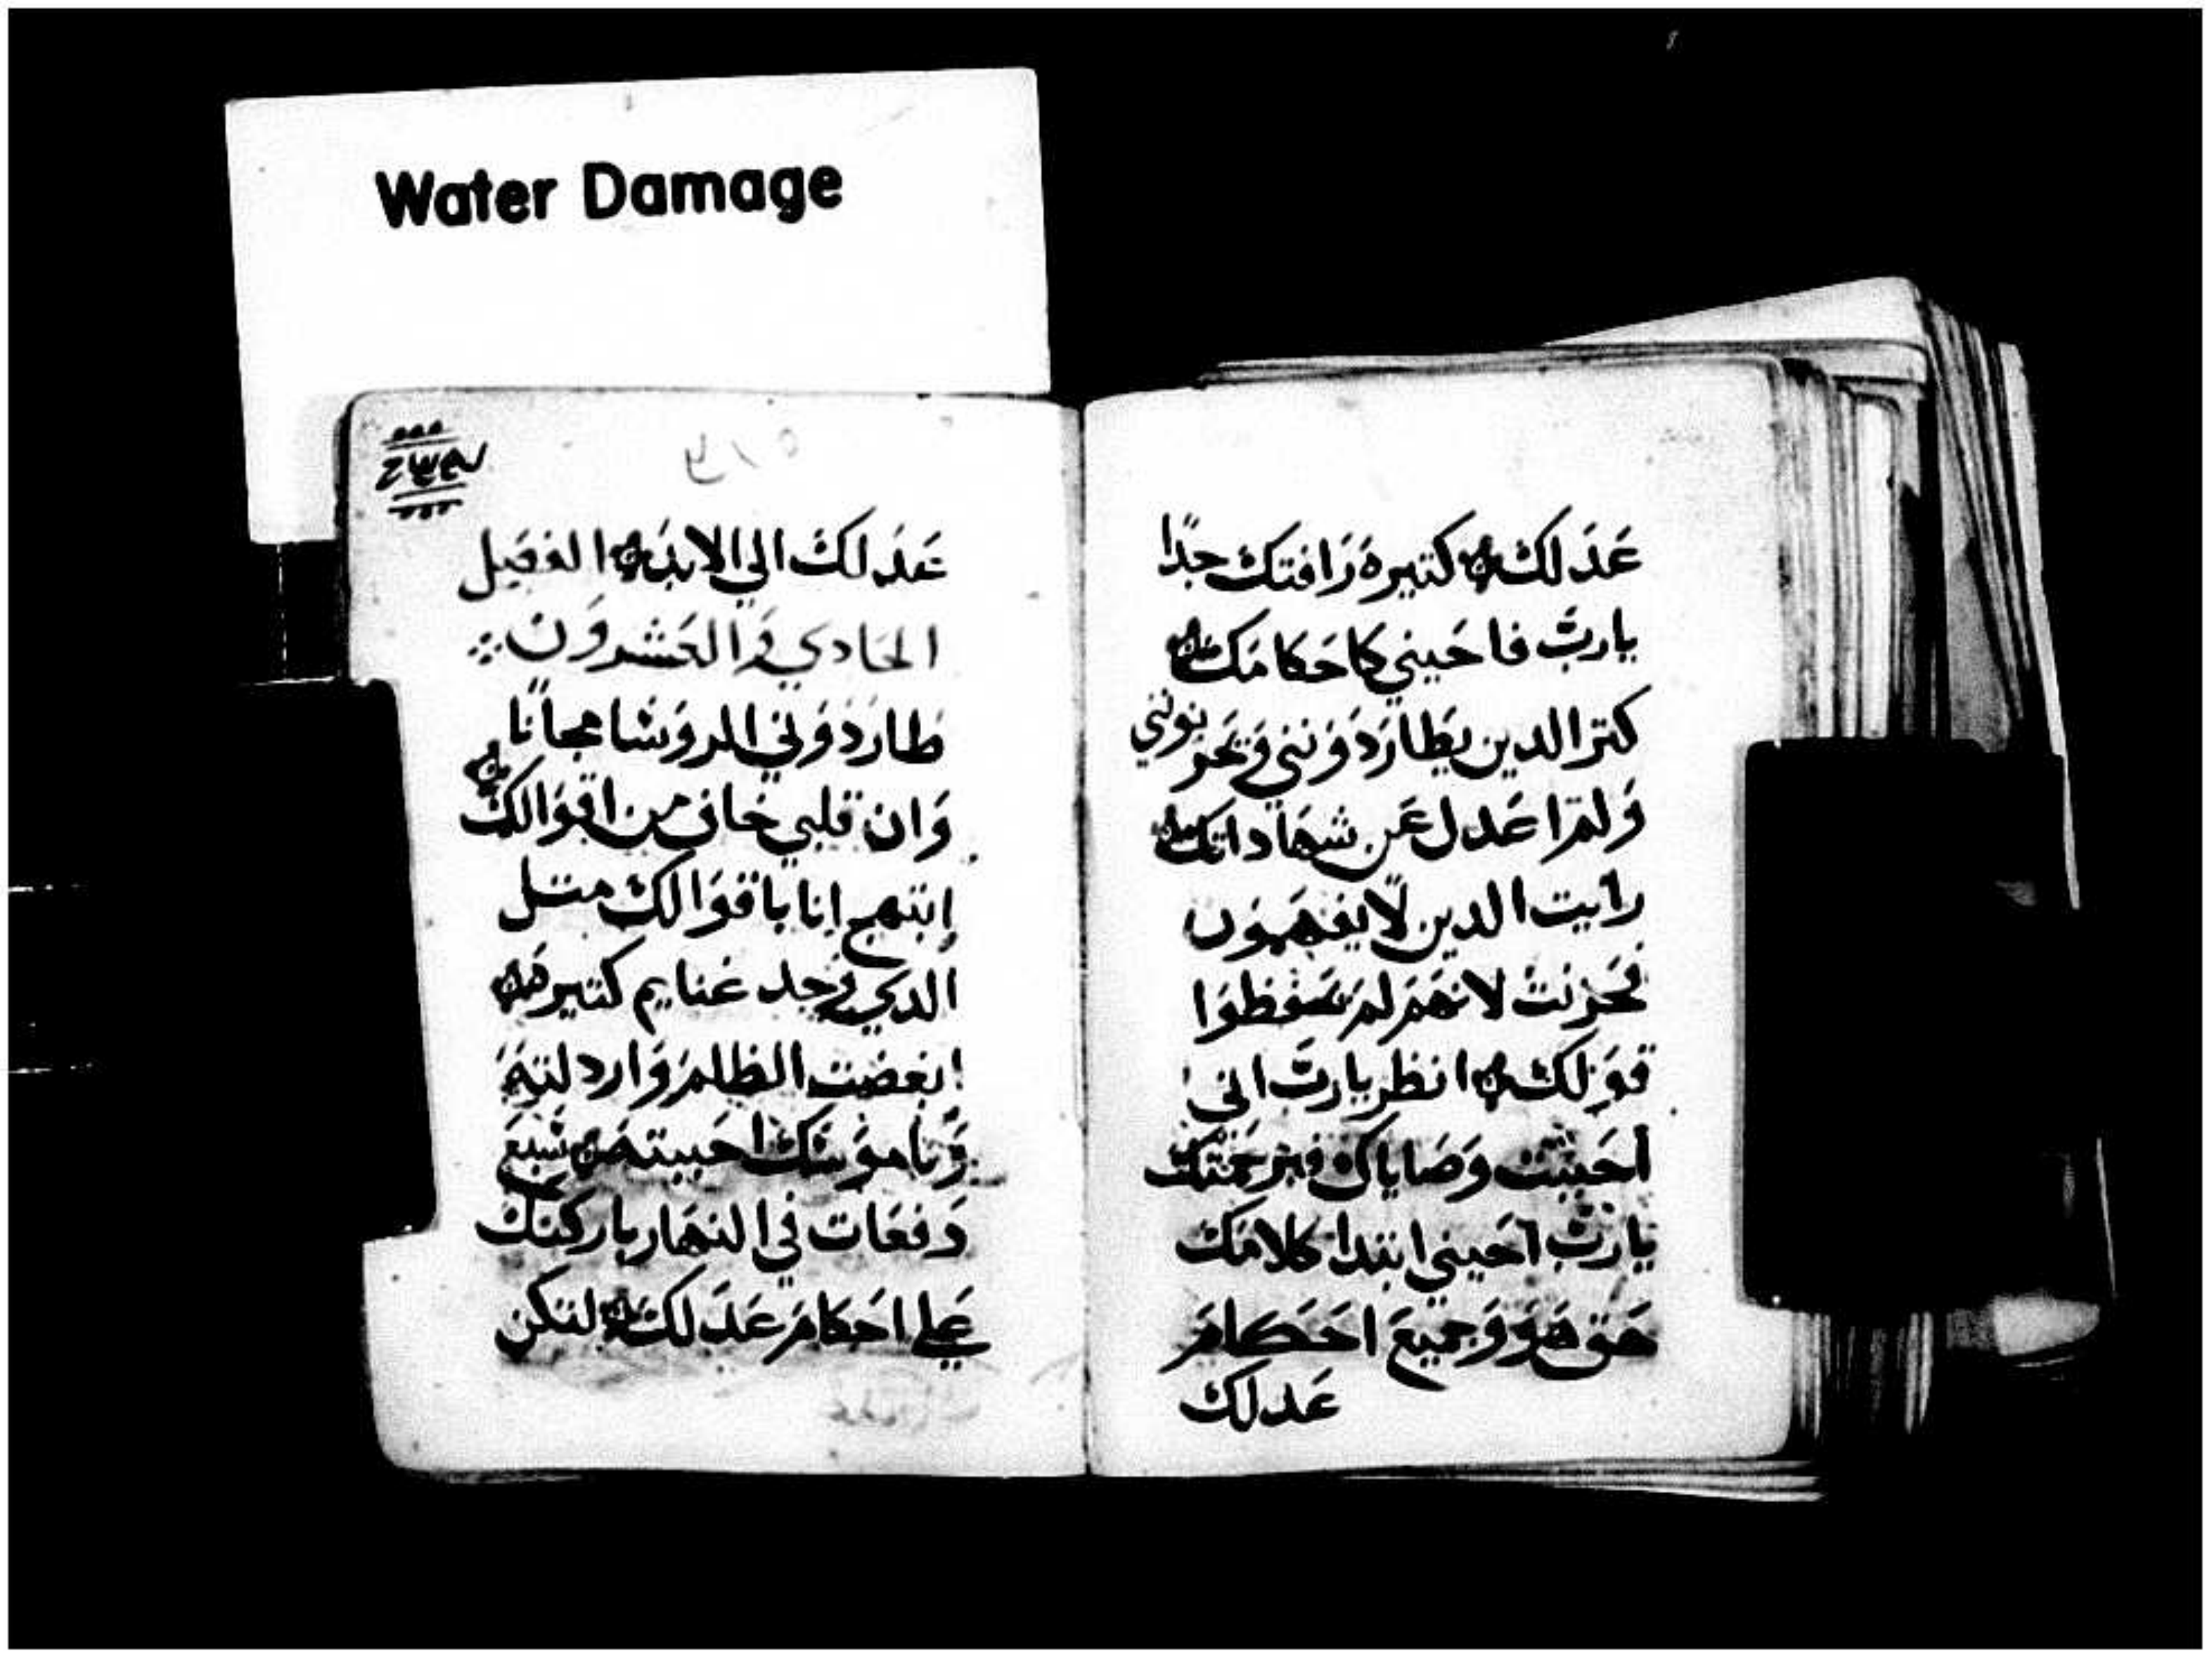 Water Damage
عَدَلكَ كتيرة رَافتك جدًا
يارب فاحَيني كاحَكامَك
كتر الدين يطارَدوَنني وَيحَزنونني
وَلمَ اعَدل عَن شهَاداتك
رايت الدين لا يفهمَون
فحَزنت لانهَمَ لمَ يحَفظوَا
قوَلك انظر يارب اني
احَببت وَصَاياك فبرحَمتك
يارب احَيني ابتدا كلامَك
حَق هَوَ وَجميعَ احَكامَ
عَدلك
عَدَلك الي الابد الفصَل
الحَادي وَالعَشروَن
طارَدوَني المروَسَا مجانًا
وَان قلبي خاف من اقوَالك
ابتهج انا باقوَالك متل
الدي وَجد غنايم كتيرة
ابغضت الظلمَ وَاردلتهَ
وَنامَوَسَك احَببته سَبعَ
دَفعَات في النهَار باركتك
عَلي احَكامَ عَدَلك لتكن